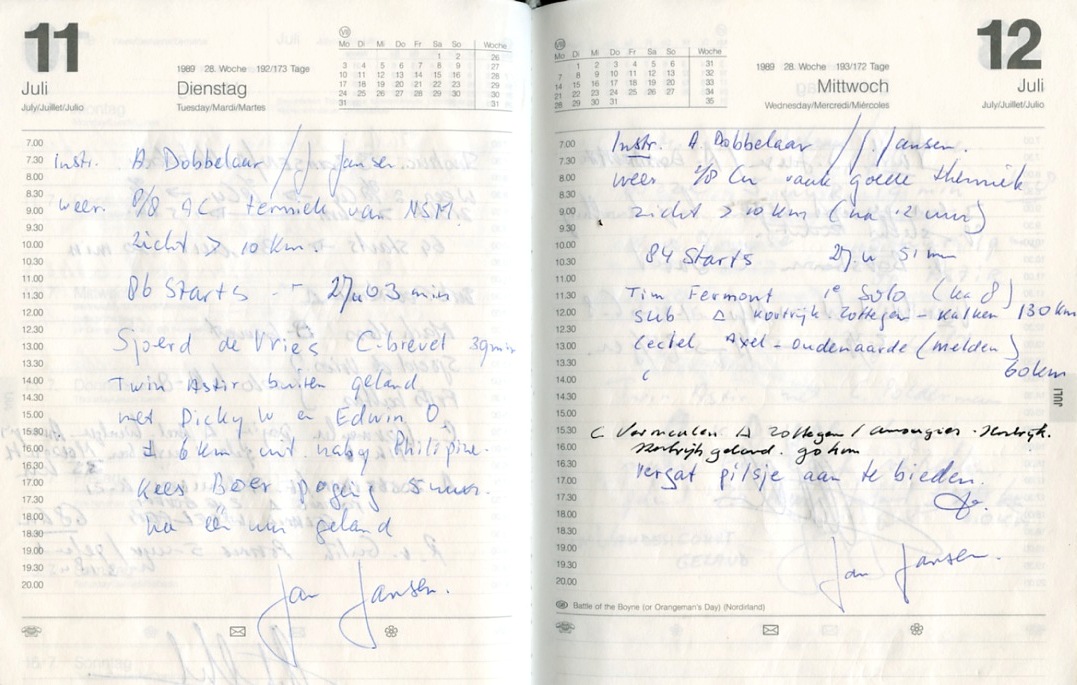 11
Juli
July/Juillet/Julio
1989 28. Woche 192/173 Tage
Dienstag
Tuesday/Mardi/Martes
VII
Mo Di Mi Do Fr Sa So Woche
1 2 26
3 4 5 6 7 8 9 27
10 11 12 13 14 15 16 28
17 18 19 20 21 22 23 29
24 25 26 27 28 29 30 30
31 31
7.00
7.30 Instr. A. Dobbelaar / J. Jansen.
8.00
8.30 weer. 8/8 AC termiek van NSM.
9.00
9.30 zicht > 10 Km
10.00
10.30
11.00 86 Starts - 27u 03 min
11.30
12.00
12.30
13.00 Sjoerd de Vries C-brevet 39min
13.30
14.00 Twin Astir buiten geland
14.30
15.00 met Dicky W en Edwin O,
15.30
16.00 ± 6 km uit. nabij Philipine.
16.30
17.00 Kees Boer poging 5 uur.
17.30
18.00 na één uur geland
18.30
19.00
19.30
20.00 Jan Jansen.
VIII
Mo Di Mi Do Fr Sa So Woche
1 2 3 4 5 6 31
7 8 9 10 11 12 13 32
14 15 16 17 18 19 20 33
21 22 23 24 25 26 27 34
28 29 30 31 35
1989 28. Woche 193/172 Tage
Mittwoch
Wednesday/Mercredi/Miércoles
12
Juli
July/Juillet/Julio
7.00 Instr. A. Dobbelaar / J. Jansen.
7.30
8.00 weer /8 Cu vaak goede thermiek
8.30
9.00 zicht > 10 km (na 12 uur)
9.30
10.00 84 Starts 27 u 51 min
10.30
11.00
11.30 Tim Fermont 1e Solo (ka 8)
12.00 Sub Δ Kortrijk. Zottegen - Kalken 130 km
12.30
13.00 Axel - Oudenaarde (melden)
13.30 60km
14.00
14.30
15.00
15.30 C Vermeulen Δ Zottegem / Amougies - Kortrijk.
16.00 Kortrijk geland. 90 km
16.30
17.00 vergat pilsje aan te bieden.
17.30
18.00
18.30
19.00
19.30 Jan Jansen.
20.00
Battle of the Boyne (or Orangeman's Day) (Nordirland)
JULI